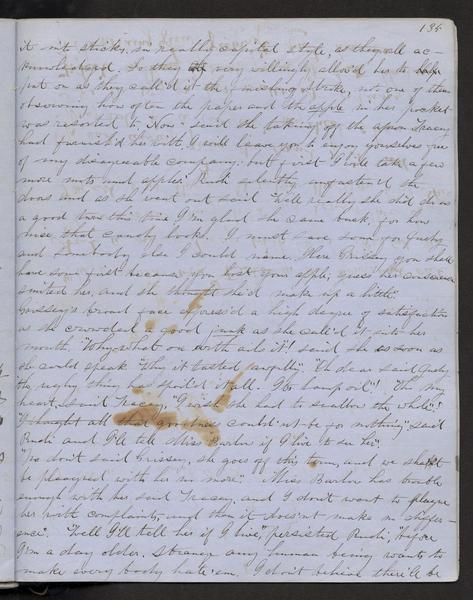 134
it nut sticks, in really capital style, as they all ac-
knowledged. So they very willingly allow'd her to help
put on as they call'd it the finishing stroke, not one of them
observing how often the paper and the apple in her pocket
was resorted to. "Now" said she taking off the apron Tracey
had furnish'd her with, "I will leave you to enjoy yourselves free
of my disagreeable company. but first I will take a few
more nuts and apples." Ruth silently unfastened the
doors and as she went out said "Well really she did do us
a good turn this time I'm glad she came back, for how
nice that candy looks. I must save some for Gusty
and somebody else I could name. Here Grissey you shall
have some first because you lost your apple, guess her conscience
smited her, and she thought she'd make up a little."
Grissey's broad face express'd a high degree of satisfaction
as she crowded a good junk as she call'd it into her
mouth. "Why what on earth ails it"! said she as soon as
she could speak "Why it tastes awful". "Oh dear said Gusty
the ugly thing has spoil'd it all. It's lamp oil"! "Oh my
heart," said Tracey, "I wish she had to swallow the whole"!
"I thought all that goodness could'nt be for nothing" said
Ruth and I'll tell Miss Barlow if I live to see her".
"No don't said Grissey, she goes off this term, and we shan't
be plagued with her no more". Miss Barlow has trouble
enough with her said Tracey, and I don't want to plague
her with complaints, and then it does'nt make no differ-
ence". "Well I'll tell her if I live," persisted Ruth, "before
I'm a day older. Strange any human being wants to
make every body hate 'em. I don't believe there'll be